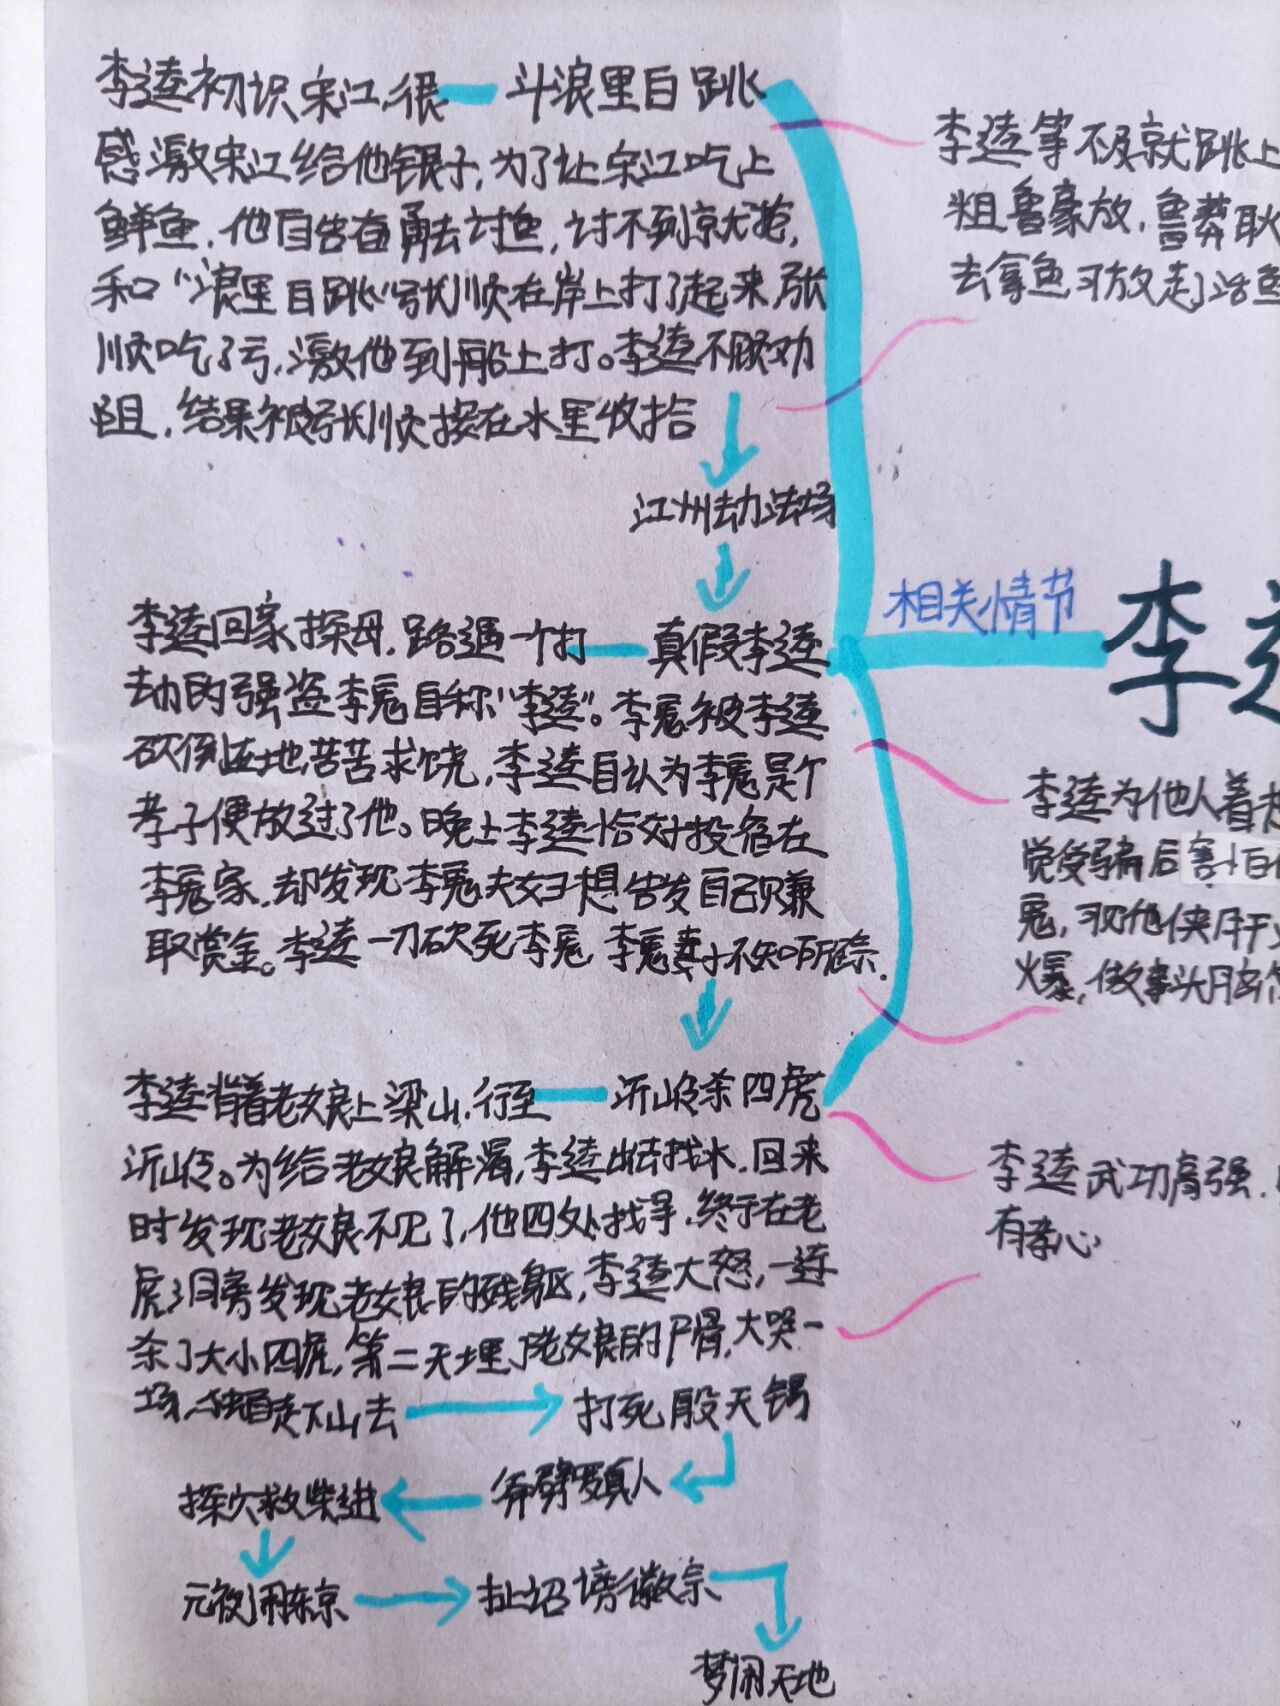 李逵初识宋江,很
斗浪里白跳
感激宋江给他银子,为了让宋江吃上
鲜鱼,他自告奋勇去讨鱼,讨不到就抢,
和“浪里白跳”张顺在岸上打了起来,张
顺吃了亏,激他到船上打。李逵不顾劝
阻,结果被张顺按在水里收拾
江州劫法场
李逵回家探母,路遇一个打
真假李逵
劫的强盗李鬼自称“李逵”。李鬼被李逵
砍倒在地,苦苦求饶,李逵自认为李鬼是个
孝子便放过了他。晚上李逵恰好投宿在
李鬼家,却发现李鬼夫妇想告发自己赚
取赏金。李逵一刀砍死李鬼 李鬼妻子不知所踪.
李逵背着老娘上梁山,行至
沂岭杀四虎
沂岭。为给老娘解渴,李逵出去找水,回来
时发现老娘不见了,他四处找寻,终于在老
虎洞旁发现老娘的残躯,李逵大怒,一连
杀了大小四虎,第二天埋了老娘的尸骨,大哭一
场,独自走下山去
打死殷天锡
斧劈罗真人
探穴救柴进
元夜闹东京
扯诏谤徽宗
梦闹天地
李逵等不及就跳上
粗鲁豪放,鲁莽耿
去拿鱼 放走了活鱼
相关情节
李逵
李逵为他人着
觉受骗后害怕
鬼,
爆,做事头脑简
李逵武功高强,
有孝心